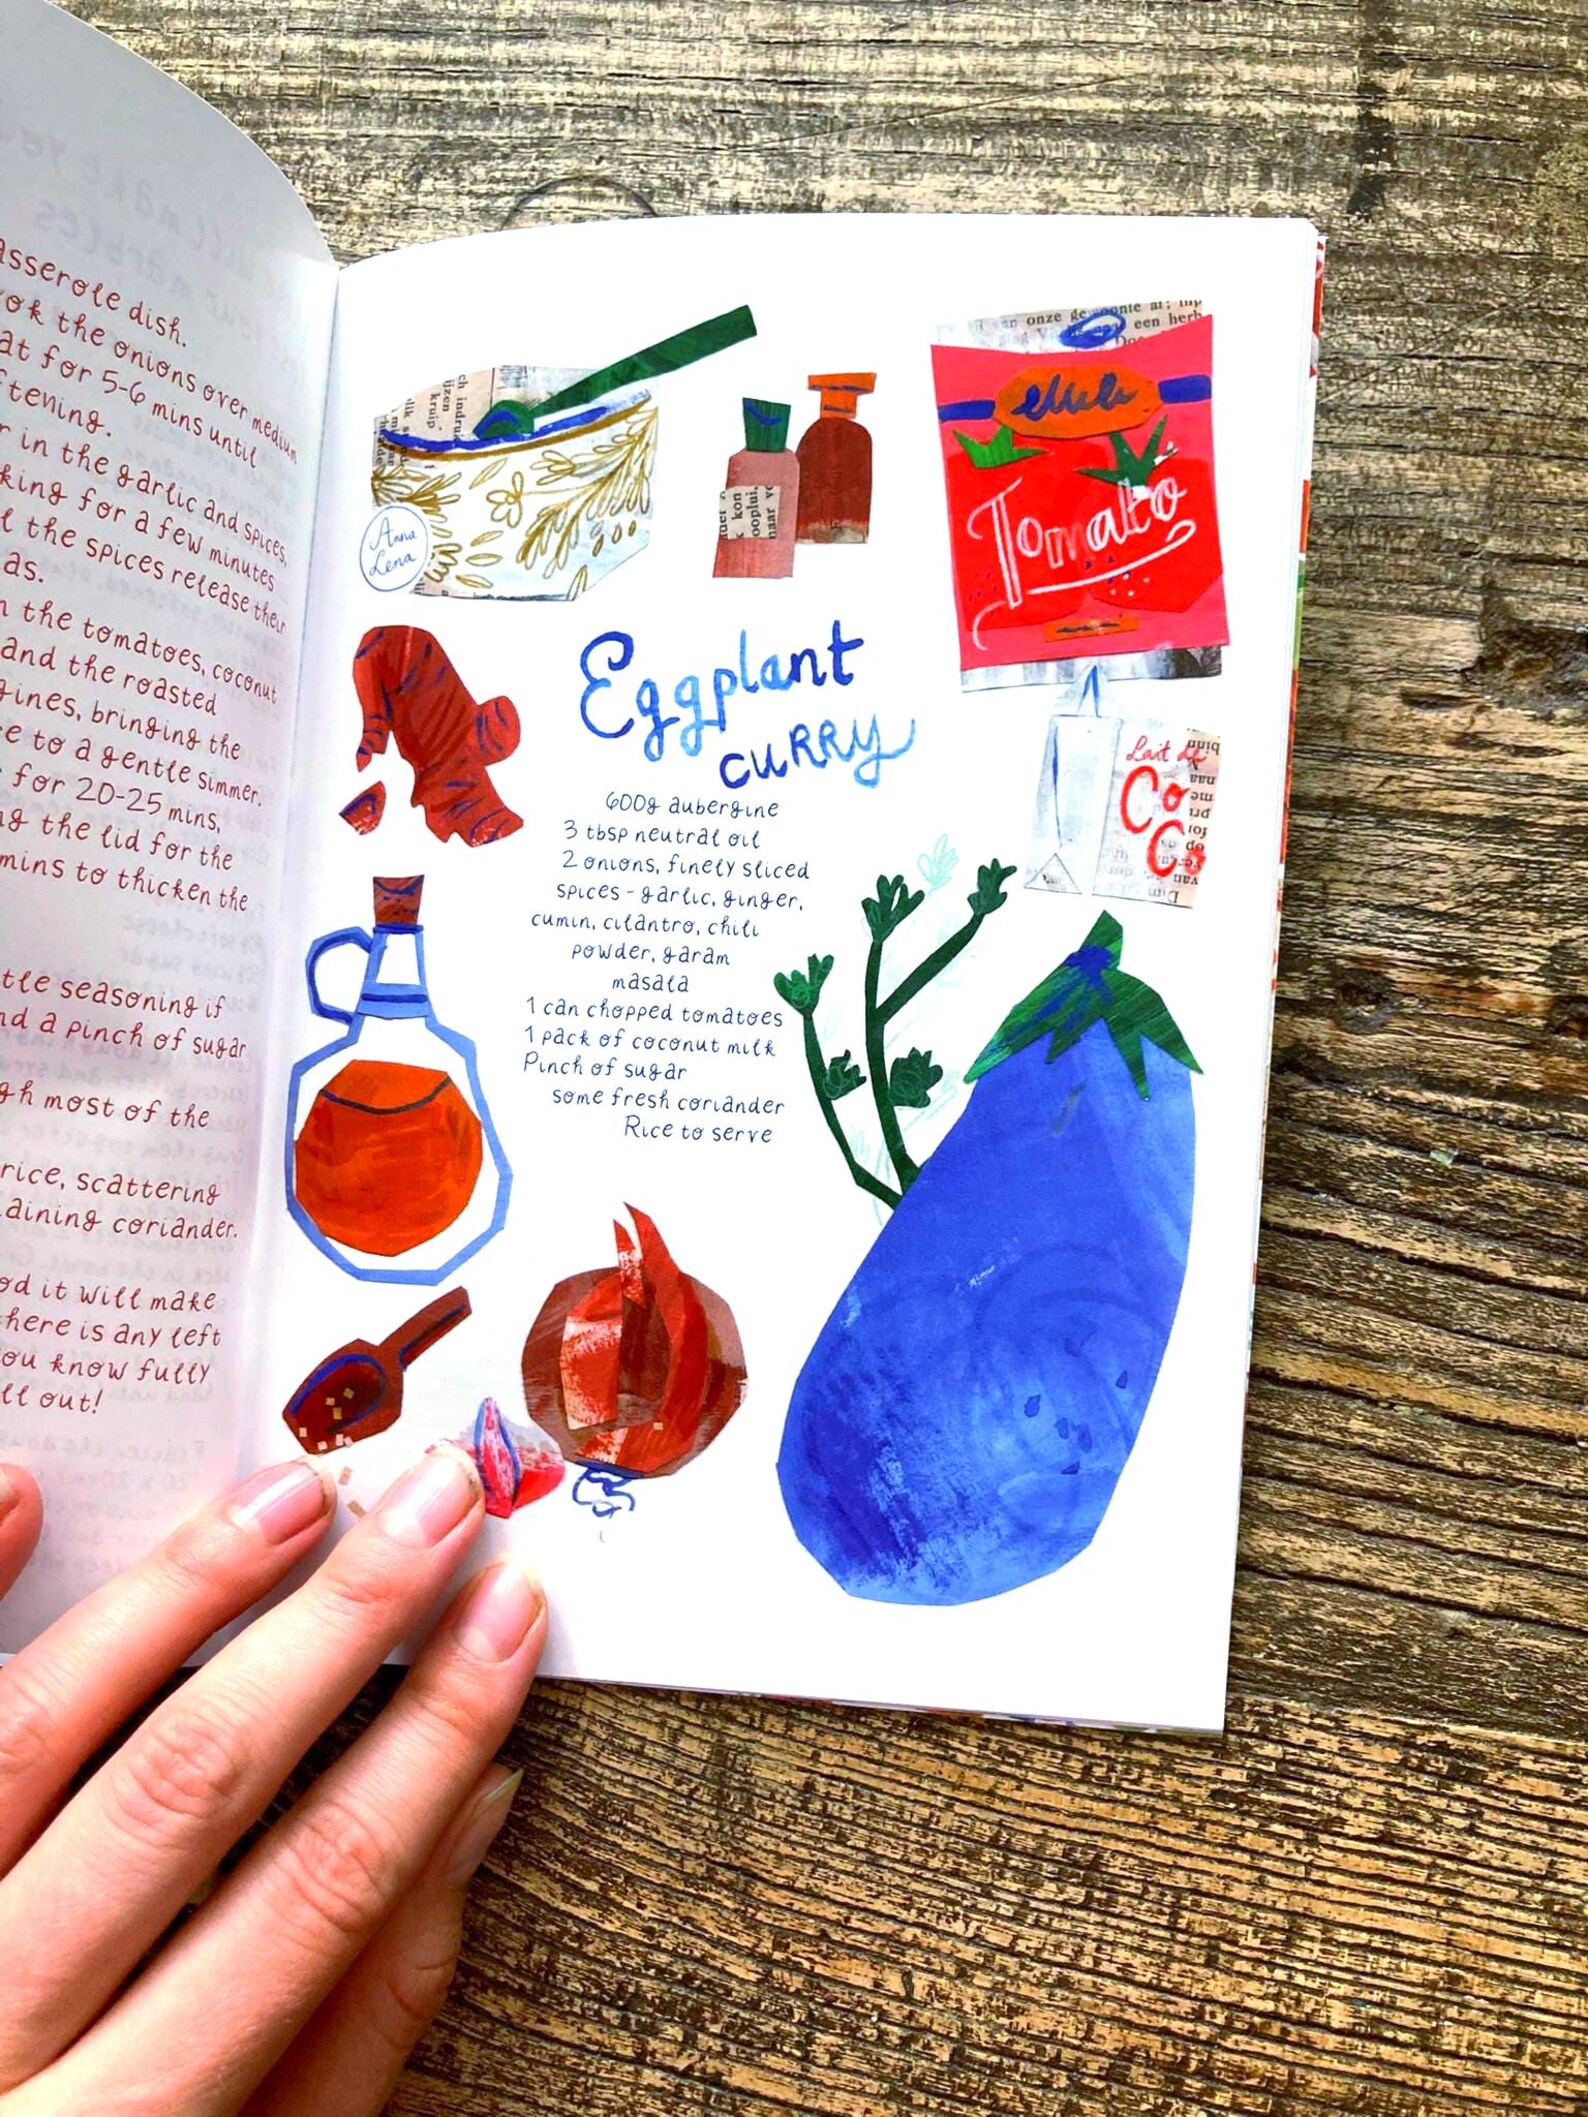 asserole dish.
ok the onions over medium
at for 5-6 mins until
ftening.
r in the garlic and spices,
king for a few minutes
l the spices release their
as.
n the tomatoes, coconut
and the roasted
gines, bringing the
e to a gentle simmer.
for 20-25 mins,
ng the lid for the
mins to thicken the
tle seasoning if
nd a pinch of sugar
gh most of the
rice, scattering
aining coriander.
od it will make
here is any left
ou know fully
ll out!
Anna
Lena
kruip
kon
ooplui,
naar
an onze gewoonte
een herb
Tomato
Lait de
Co
Co
van
Eggplant
curry
600g aubergine
3 tbsp neutral oil
2 onions, finely sliced
spices - garlic, ginger,
cumin, cilantro, chili
powder, garam
masala
1 can chopped tomatoes
1 pack of coconut milk
Pinch of sugar
some fresh coriander
Rice to serve